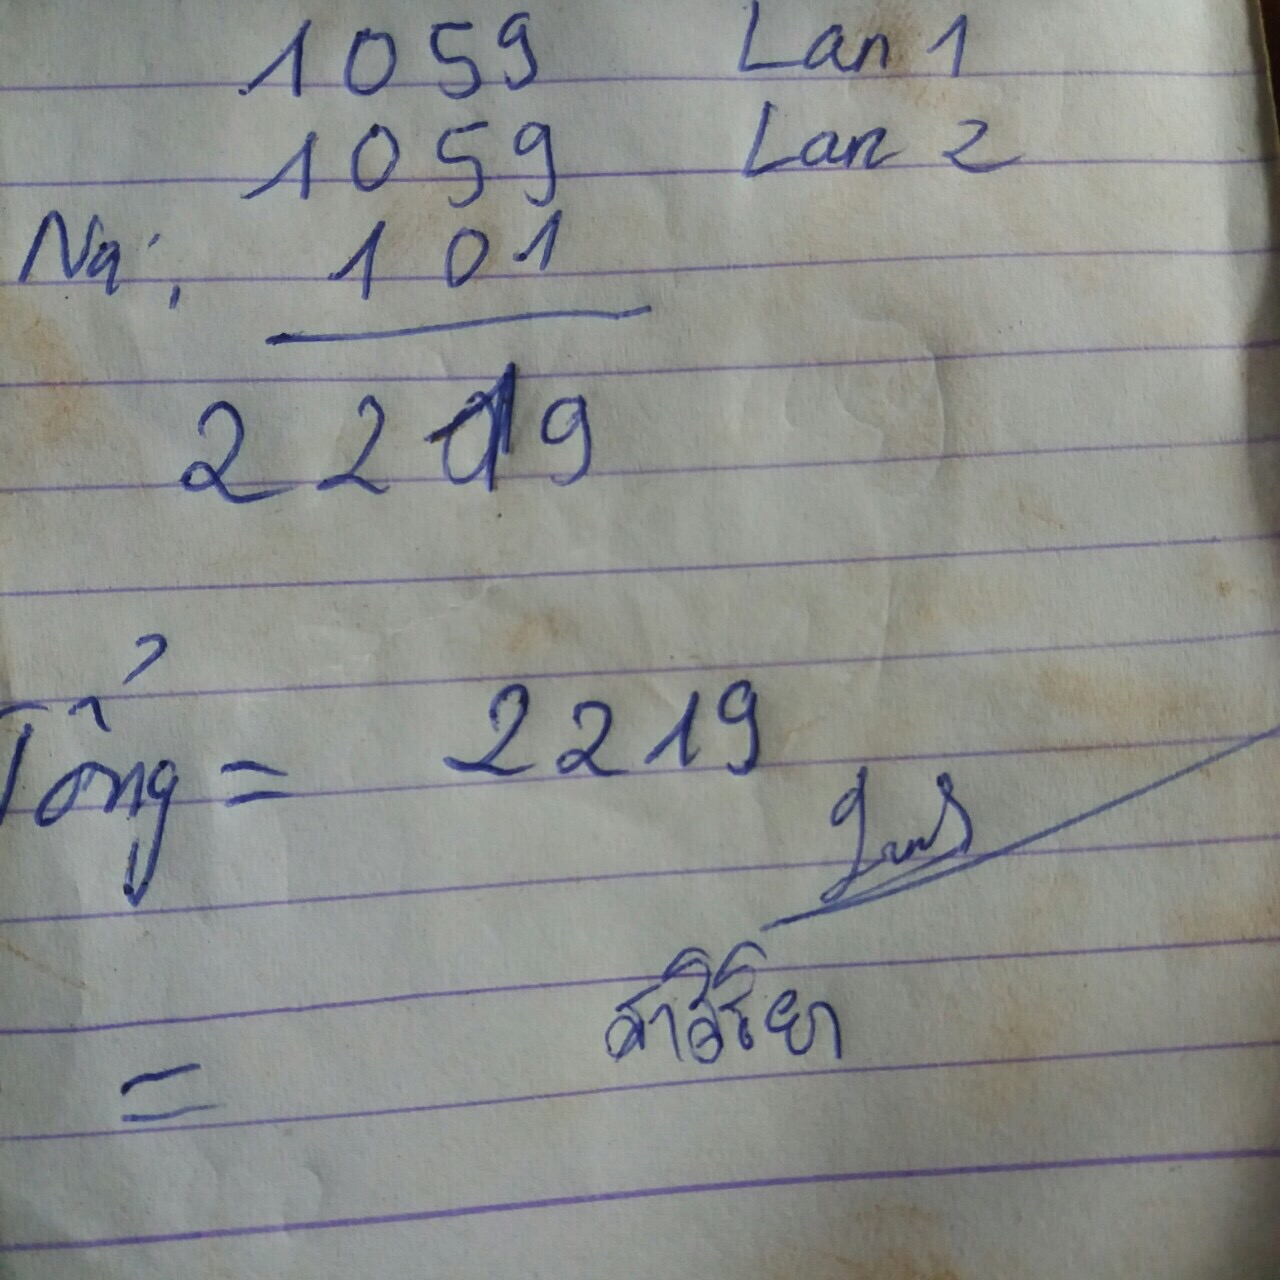 1059 Lan 1
1059 Lan 2
Nợ: 101
2219
Tổng = 2219
=